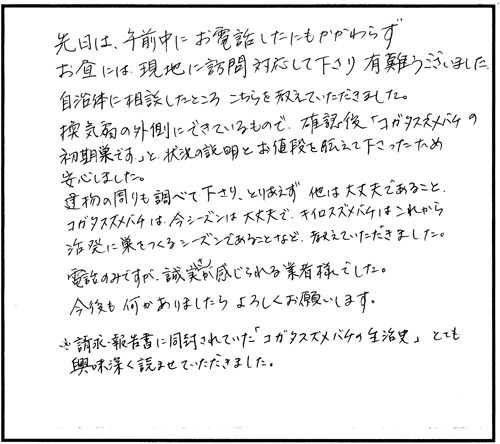 先日は、午前中にお電話したにもかかわらず
お昼には現地に訪問対応して下さり有難うございました。
自治体に相談したところこちらを教えていただきました。
換気扇の外側にできているもので、確認後「コガタスズメバチの
初期巣です。」と、状況の説明とお値段を伝えて下さったため
安心しました。
建物の周りも調べて下さり、とりあえず他は大丈夫であること、
コガタスズメバチは、今シーズンは大丈夫で、キイロスズメバチはこれから
活発に巣をつくるシーズンであることなど、教えていただきました。
電話のみですが、誠実さが感じられる業者様でした。
今後も何かありましたらよろしくお願いします。
※請求・報告書に同封されていた「コガタスズメバチの生活史」とても
興味深く読ませていただきました。